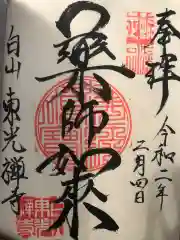 奉拝
令和二年
二月四日
薬師如来
白山 東光禅寺